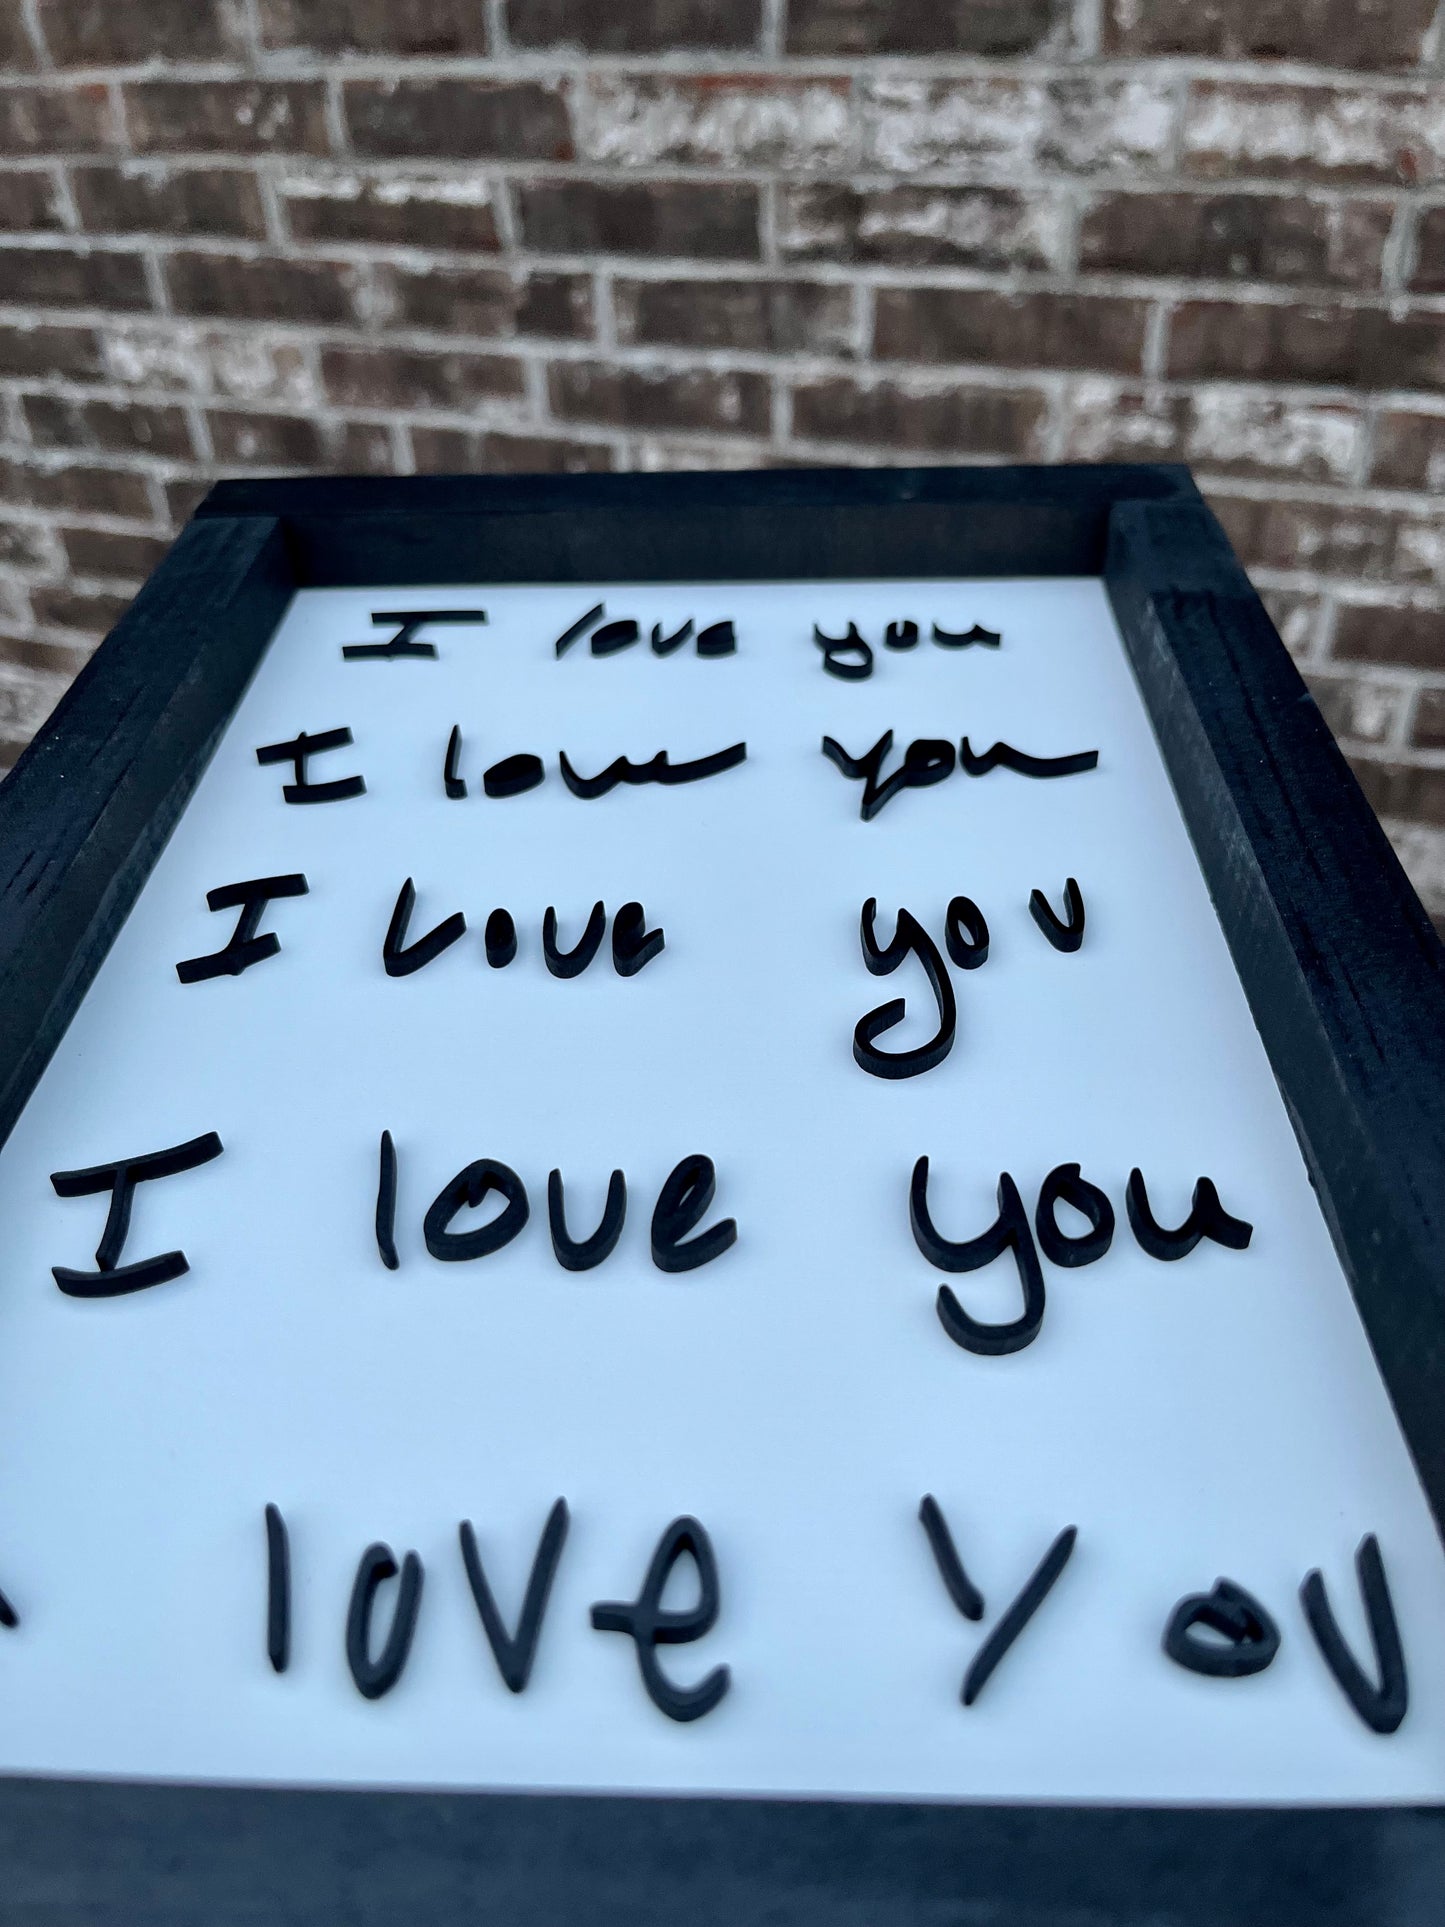 I love you
I love you
I Love you
I love you
love You